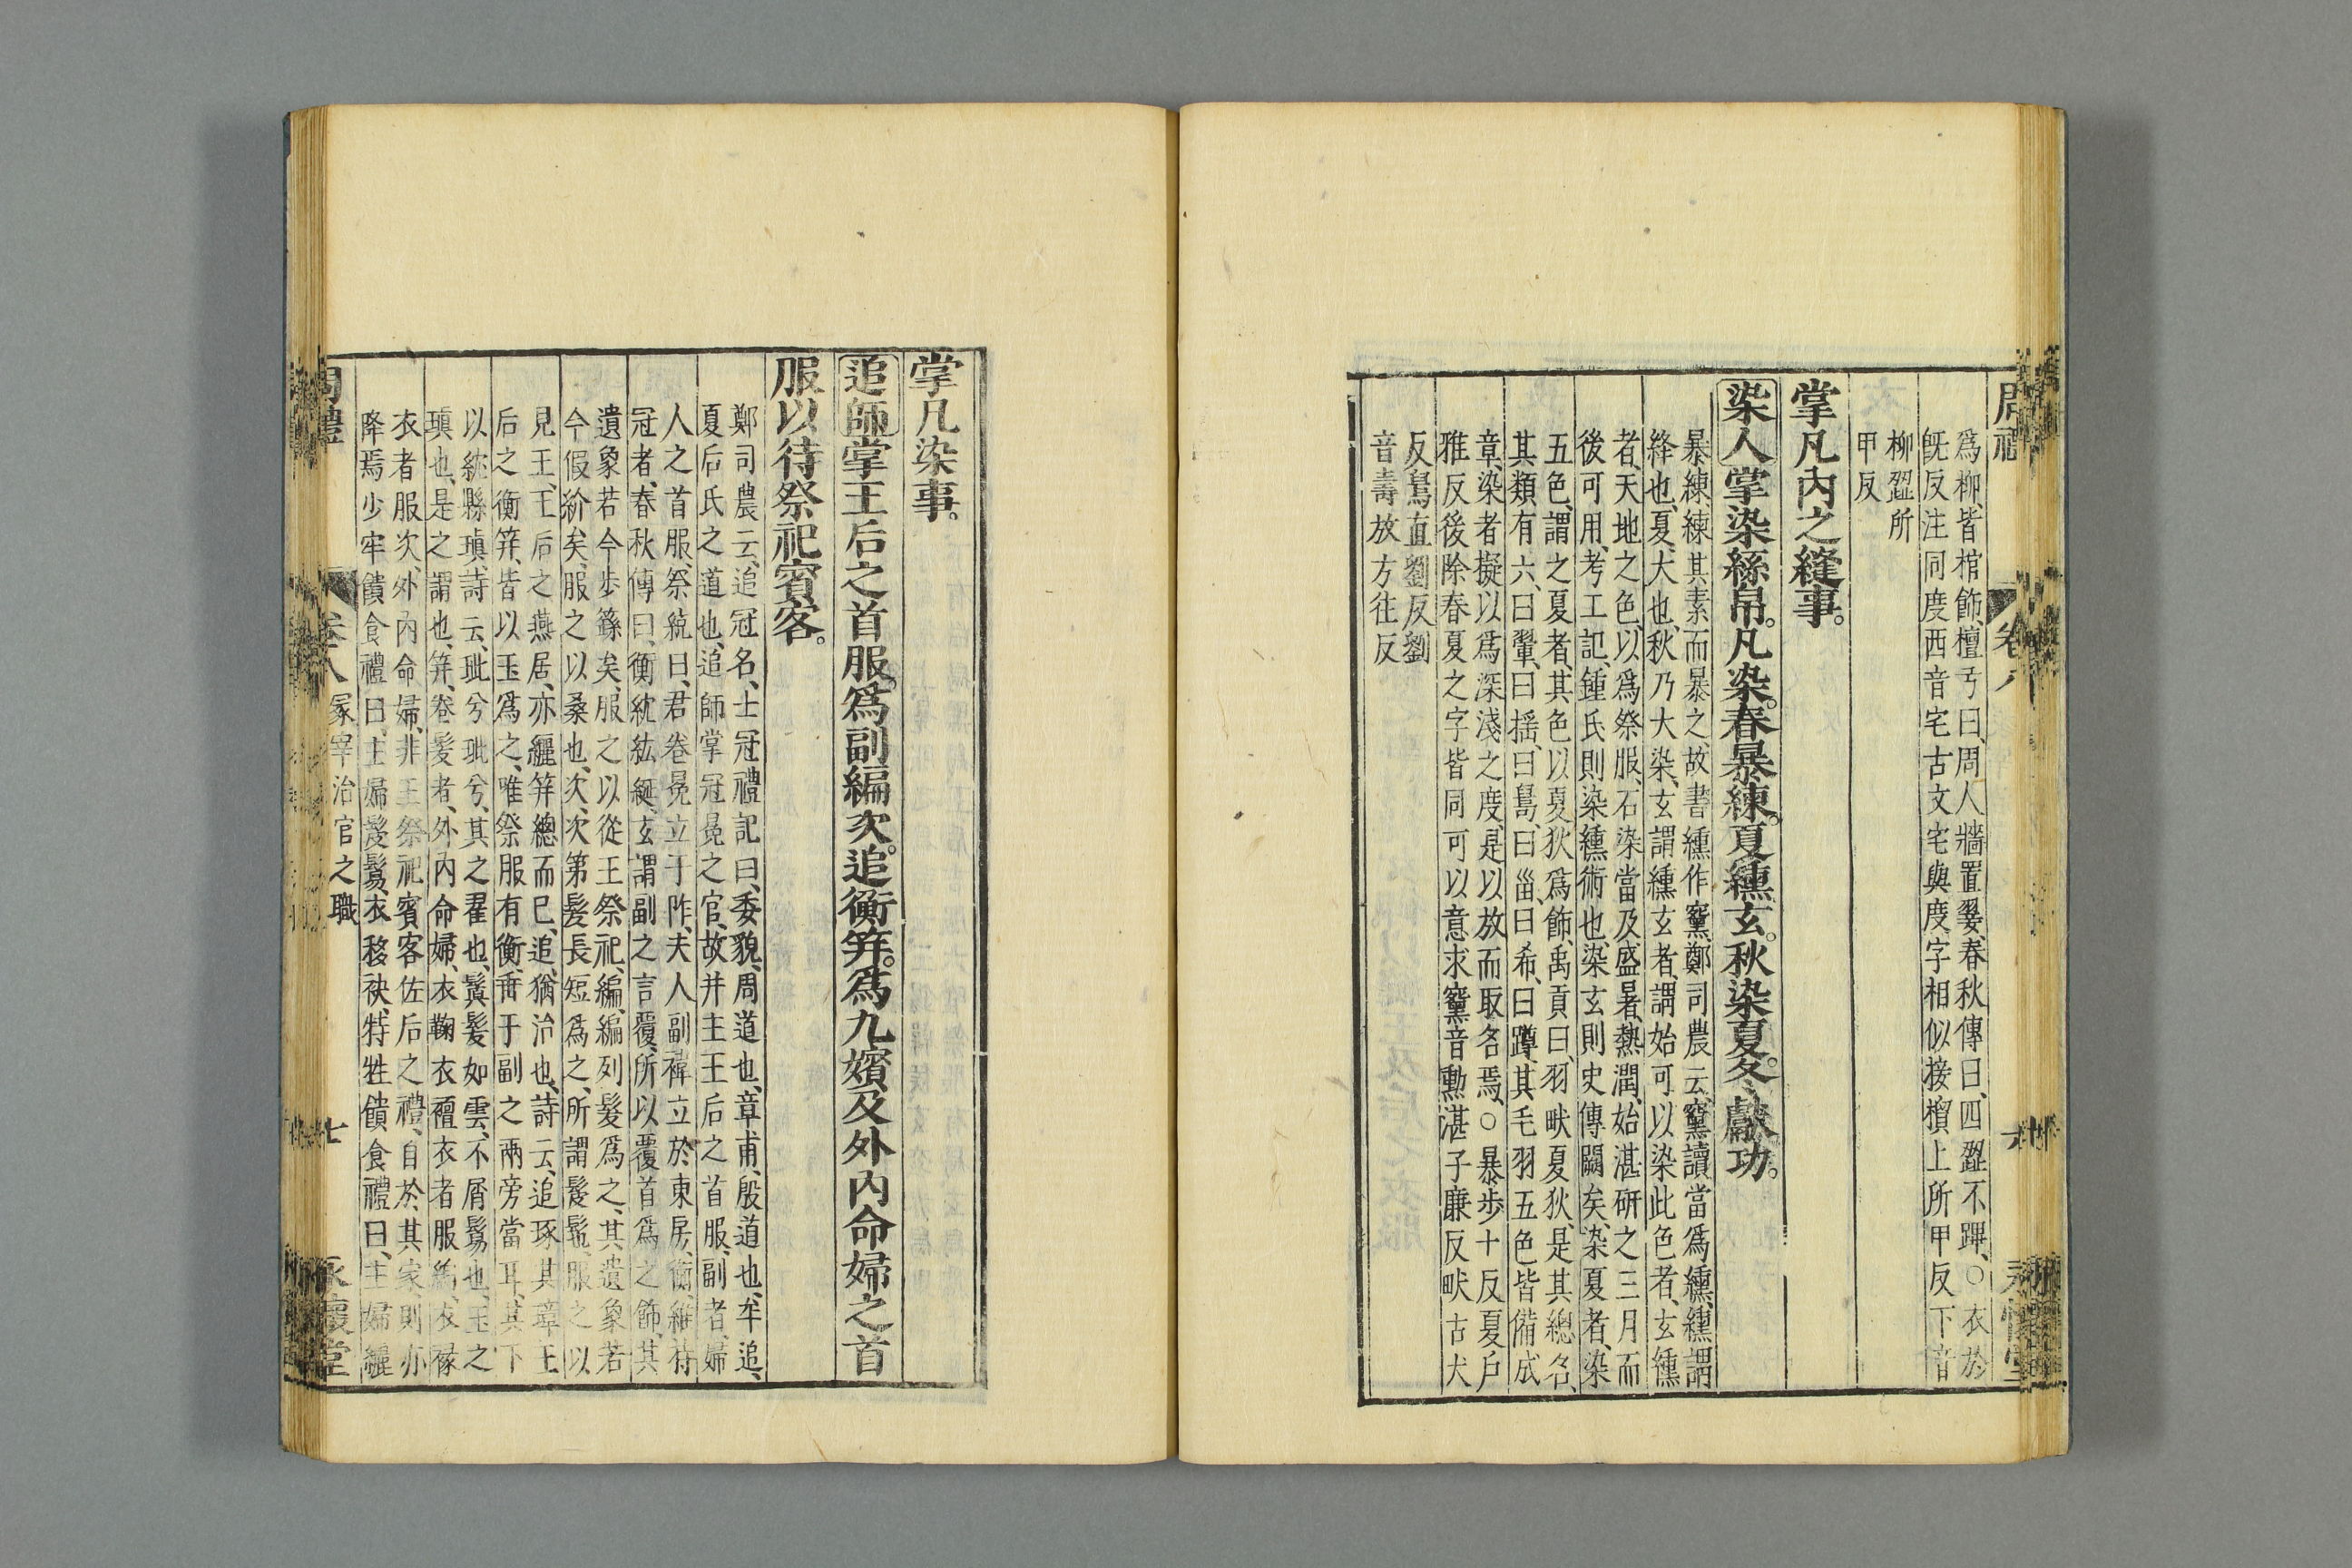 周禮 卷八 六 永懷堂
爲柳、皆棺飾、檀弓曰、周人牆置翣、春秋傳曰、四翣不蹕、○衣於
旣反注同度西音宅古文宅與度字相似接橮上所甲反下音
柳翣所
甲反
掌凡內之縫事。
染人掌染絲帛。凡染。春暴練。夏纁玄。秋染夏。冬獻功。
暴練、練其素而暴之、故書纁作䵫、鄭司農云、䵫讀當爲纁、纁謂
絳也、夏、大也、秋乃大染、玄謂纁玄者、謂始可以染此色者、玄纁
者、天地之色、以爲祭服、石染當及盛暑、熱潤、始湛研之三月而
後可用、考工記、鍾氏則染纁術也、染玄則史傳闕矣、染夏者、染
五色、謂之夏者、其色以夏狄爲飾、禹貢曰、羽畎夏狄、是其總名、
其類有六、曰翬、曰搖、曰𠷎、曰甾、曰希、曰蹲、其毛羽五色皆備成
章、染者擬以爲深淺之度、是以放而取名焉、○暴步十反夏戶
雅反後除春夏之字皆同可以意求䵫音勳湛子廉反畎古犬
反𠷎直劉反劉
音壽放方往反
掌凡染事。
追師掌王后之首服。爲副編次。追衡笄。爲九嬪及外內命婦之首
服以待祭祀賓客。
鄭司農云、追冠名、士冠禮記曰、委貌、周道也、章甫、殷道也、牟追、
夏后氏之道也、追師掌冠冕之官、故幷主王后之首服、副者、婦
人之首服、祭統曰、君卷冕立于阼、夫人副褘立於東房、衡、維持
冠者、春秋傳曰、衡紞紘綖、玄謂副之言覆、所以覆首爲之飾、其
遺象若今步繇矣、服之以從王祭祀、編、編列髮爲之、其遺象若
今假紒矣、服之以桑也、次、次第髮長短爲之、所謂髲髢、服之以
見王、王后之燕居、亦纚笄總而已、追、猶治也、詩云、追琢其璋、王
后之衡笄、皆以玉爲之、唯祭服有衡、垂于副之兩旁當耳、其下
以紞縣瑱、詩云、玼兮玼兮、其之翟也、鬒髮如雲、不屑鬄也、玉之
瑱也、是之謂也、笄、卷髮者、外內命婦、衣鞠衣襢衣者服編、衣褖
衣者服次、外內命婦、非王祭祀賓客佐后之禮、自於其家則亦
降焉、少牢饋食禮曰、主婦髲鬄衣移袂、特牲饋食禮曰、主婦纚
周禮 卷八 冢宰治官之職 七 永懷堂